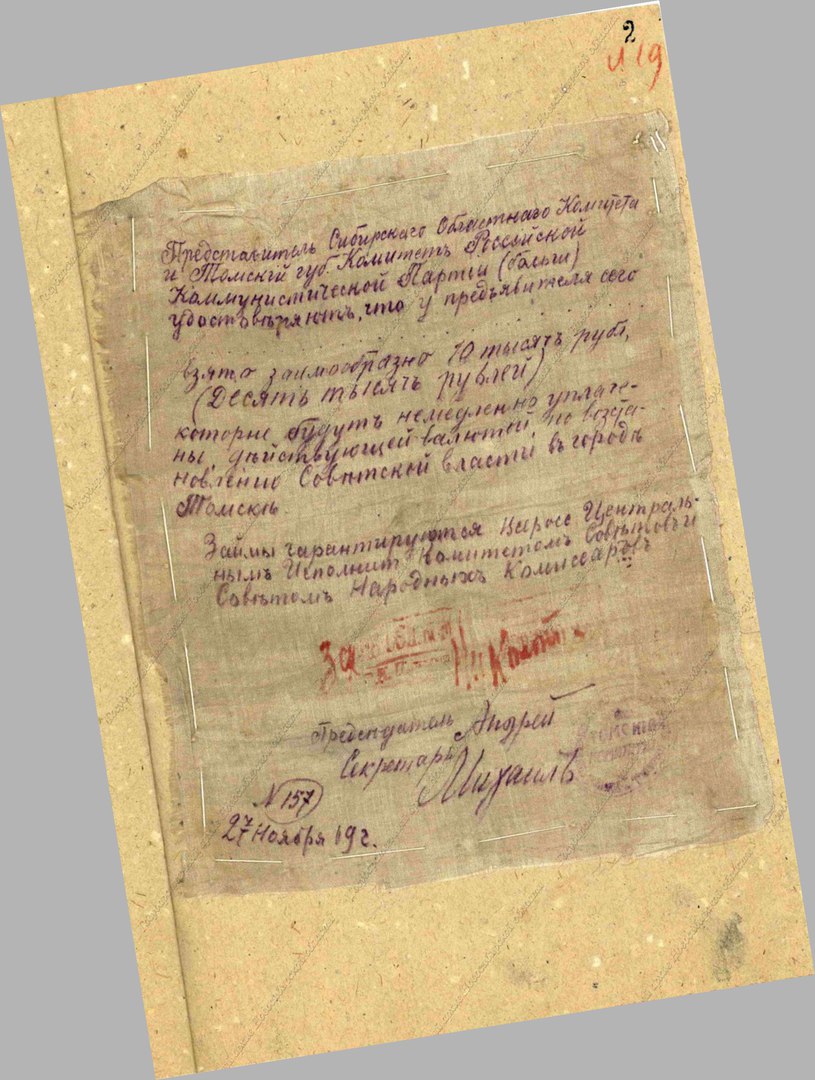 2
Представитель Сибирскаго Областнаго Комитета
и Томскій губ. Комитетъ Россійской
Коммунистической Партіи (больш)
удостовѣряютъ, что у предъявителя сего
взято заимообразно 10 тысячъ рубл,
(Десять тысячъ рублей)
которые будутъ немедленно уплаче-
ны дѣйствующей валютой, по возста-
новленію Совѣтской власти въ городѣ
Томскѣ
Займы гарантируются Централь-
нымъ Исполнит. Комитетомъ Совѣтовъ и
Совѣтомъ Народныхъ Комиссаровъ
Председатель Андрей
Секретарь Михаилъ
N 157
27 Ноября 19 г.